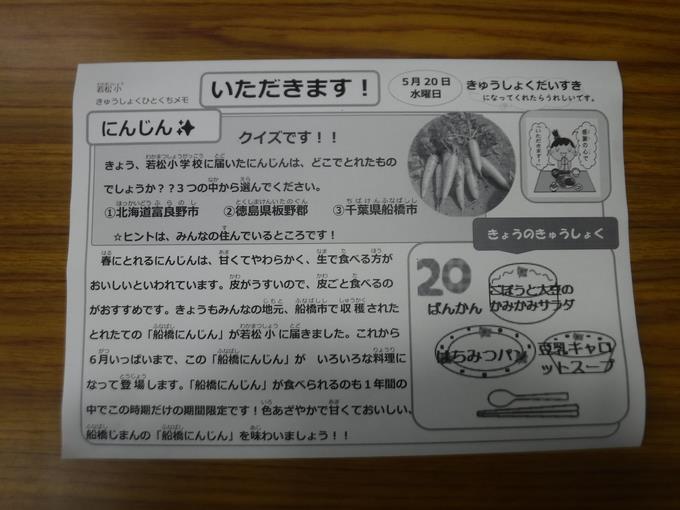 わかまつしょう
若松小
きゅうしょくひとくちメモ
いただきます！
5月20日
水曜日
きゅうしょくだいすき
になってくれたらうれしいです。
にんじん
クイズです！！
きょう、若松小学校に届いたにんじんは、どこでとれたもの
でしょうか？？3つの中から選んでください。
①北海道富良野市 ②徳島県板野郡 ③千葉県船橋市
☆ヒントは、みんなの住んでいるところです！
感謝の心で
「いただきます！」
春にとれるにんじんは、甘くてやわらかく、生で食べる方が
おいしいといわれています。皮がうすいので、皮ごと食べるの
がおすすめです。きょうもみんなの地元、船橋市で収穫された
とれたての「船橋にんじん」が若松小に届きました。これから
6月いっぱいまで、この「船橋にんじん」が いろいろな料理に
なって登場します。「船橋にんじん」が食べられるのも1年間の
中でこの時期だけの期間限定です！色あざやかで甘くておいしい、
船橋じまんの「船橋にんじん」を味わいましょう！！
きょうのきゅうしょく
20
ばんかん
ごぼうと大豆の
かみかみサラダ
はちみつパン
豆乳キャロ
ットスープ